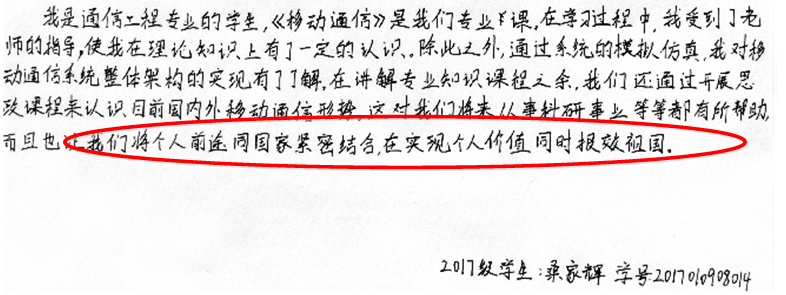 我是通信工程专业的学生,《移动通信》是我们专业课.在学习过程中,我受到了老
师的指导,使我在理论知识上有了一定的认识.除此之外,通过系统的模拟仿真,我对移
动通信系统整体架构的实现有了了解.在讲解专业知识课程之余,我们还通过开展思
政课程来认识目前国内外移动通信形势.这对我们将来从事科研事业等等都有所帮助,
而且也让我们将个人前途同国家紧密结合,在实现个人价值同时报效祖国.
2017级学生:桑家辉 学号:2017010908014